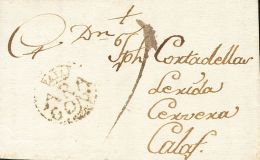 Dn
Jph Cortadellas
Lerida
Cervera
Calaf.